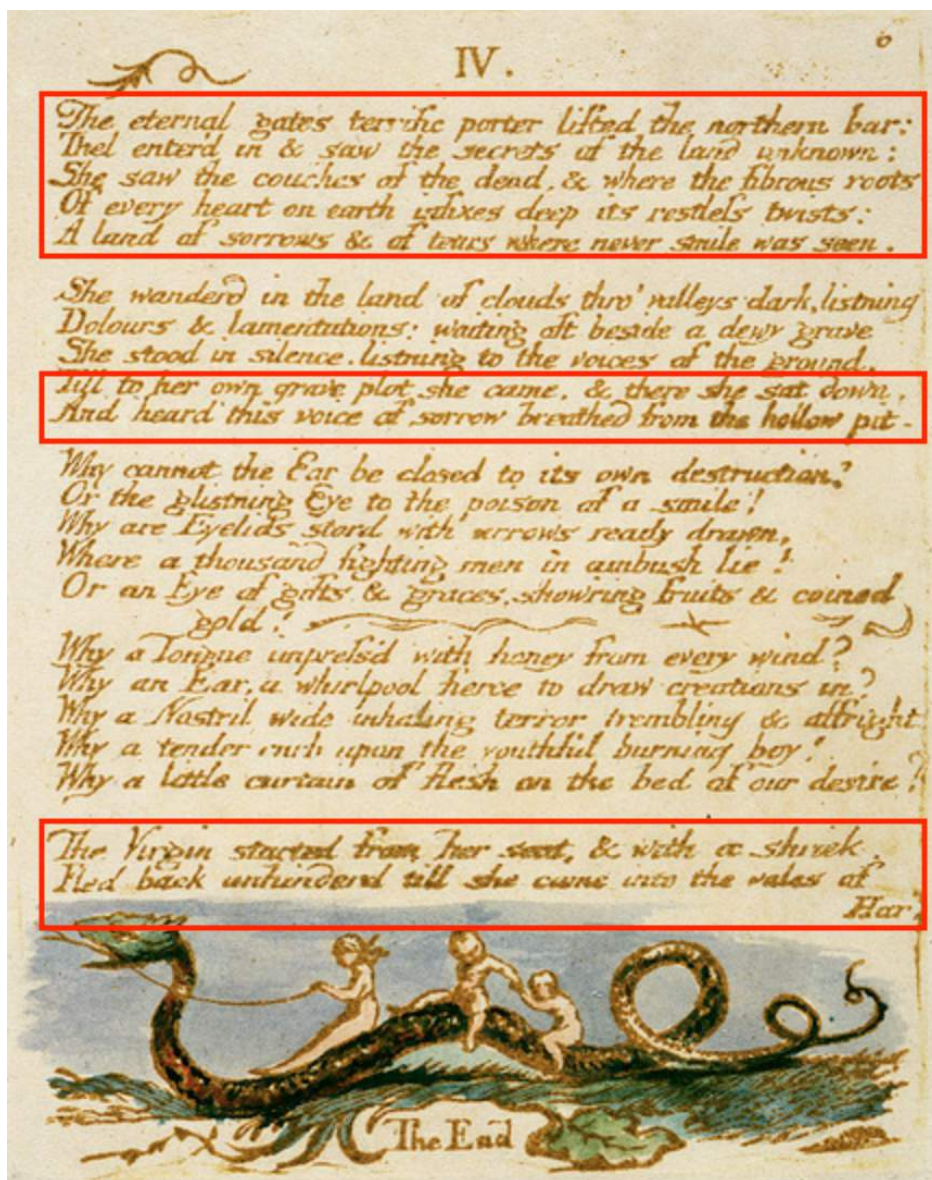 6
IV.
The eternal gates terrific porter lifted the northern bar:
Thel enterd in & saw the secrets of the land unknown:
She saw the couches of the dead, & where the fibrous roots
Of every heart on earth infixes deep its restless twists:
A land of sorrows & of tears where never smile was seen.
She wanderd in the land of clouds thro' valleys dark, listning
Dolours & lamentations: waiting oft beside a dewy grave
She stood in silence. listning to the voices of the ground,
Till to her own grave plot she came, & there she sat down,
And heard this voice of sorrow breathed from the hollow pit.
Why cannot the Ear be closed to its own destruction?
Or the glistning Eye to the poison of a smile!
Why are Eyelids stord with arrows ready drawn,
Where a thousand fighting men in ambush lie!
Or an Eye of gifts & graces, showring fruits & coined
gold!
Why a Tongue impress'd with honey from every wind?
Why an Ear, a whirlpool fierce to draw creations in?
Why a Nostril wide inhaling terror trembling & affright
Why a tender curb upon the youthful burning boy!
Why a little curtain of flesh on the bed of our desire?
The Virgin started from her seat, & with a shriek
Fled back unhinderd till she came into the vales of
Har.
The End